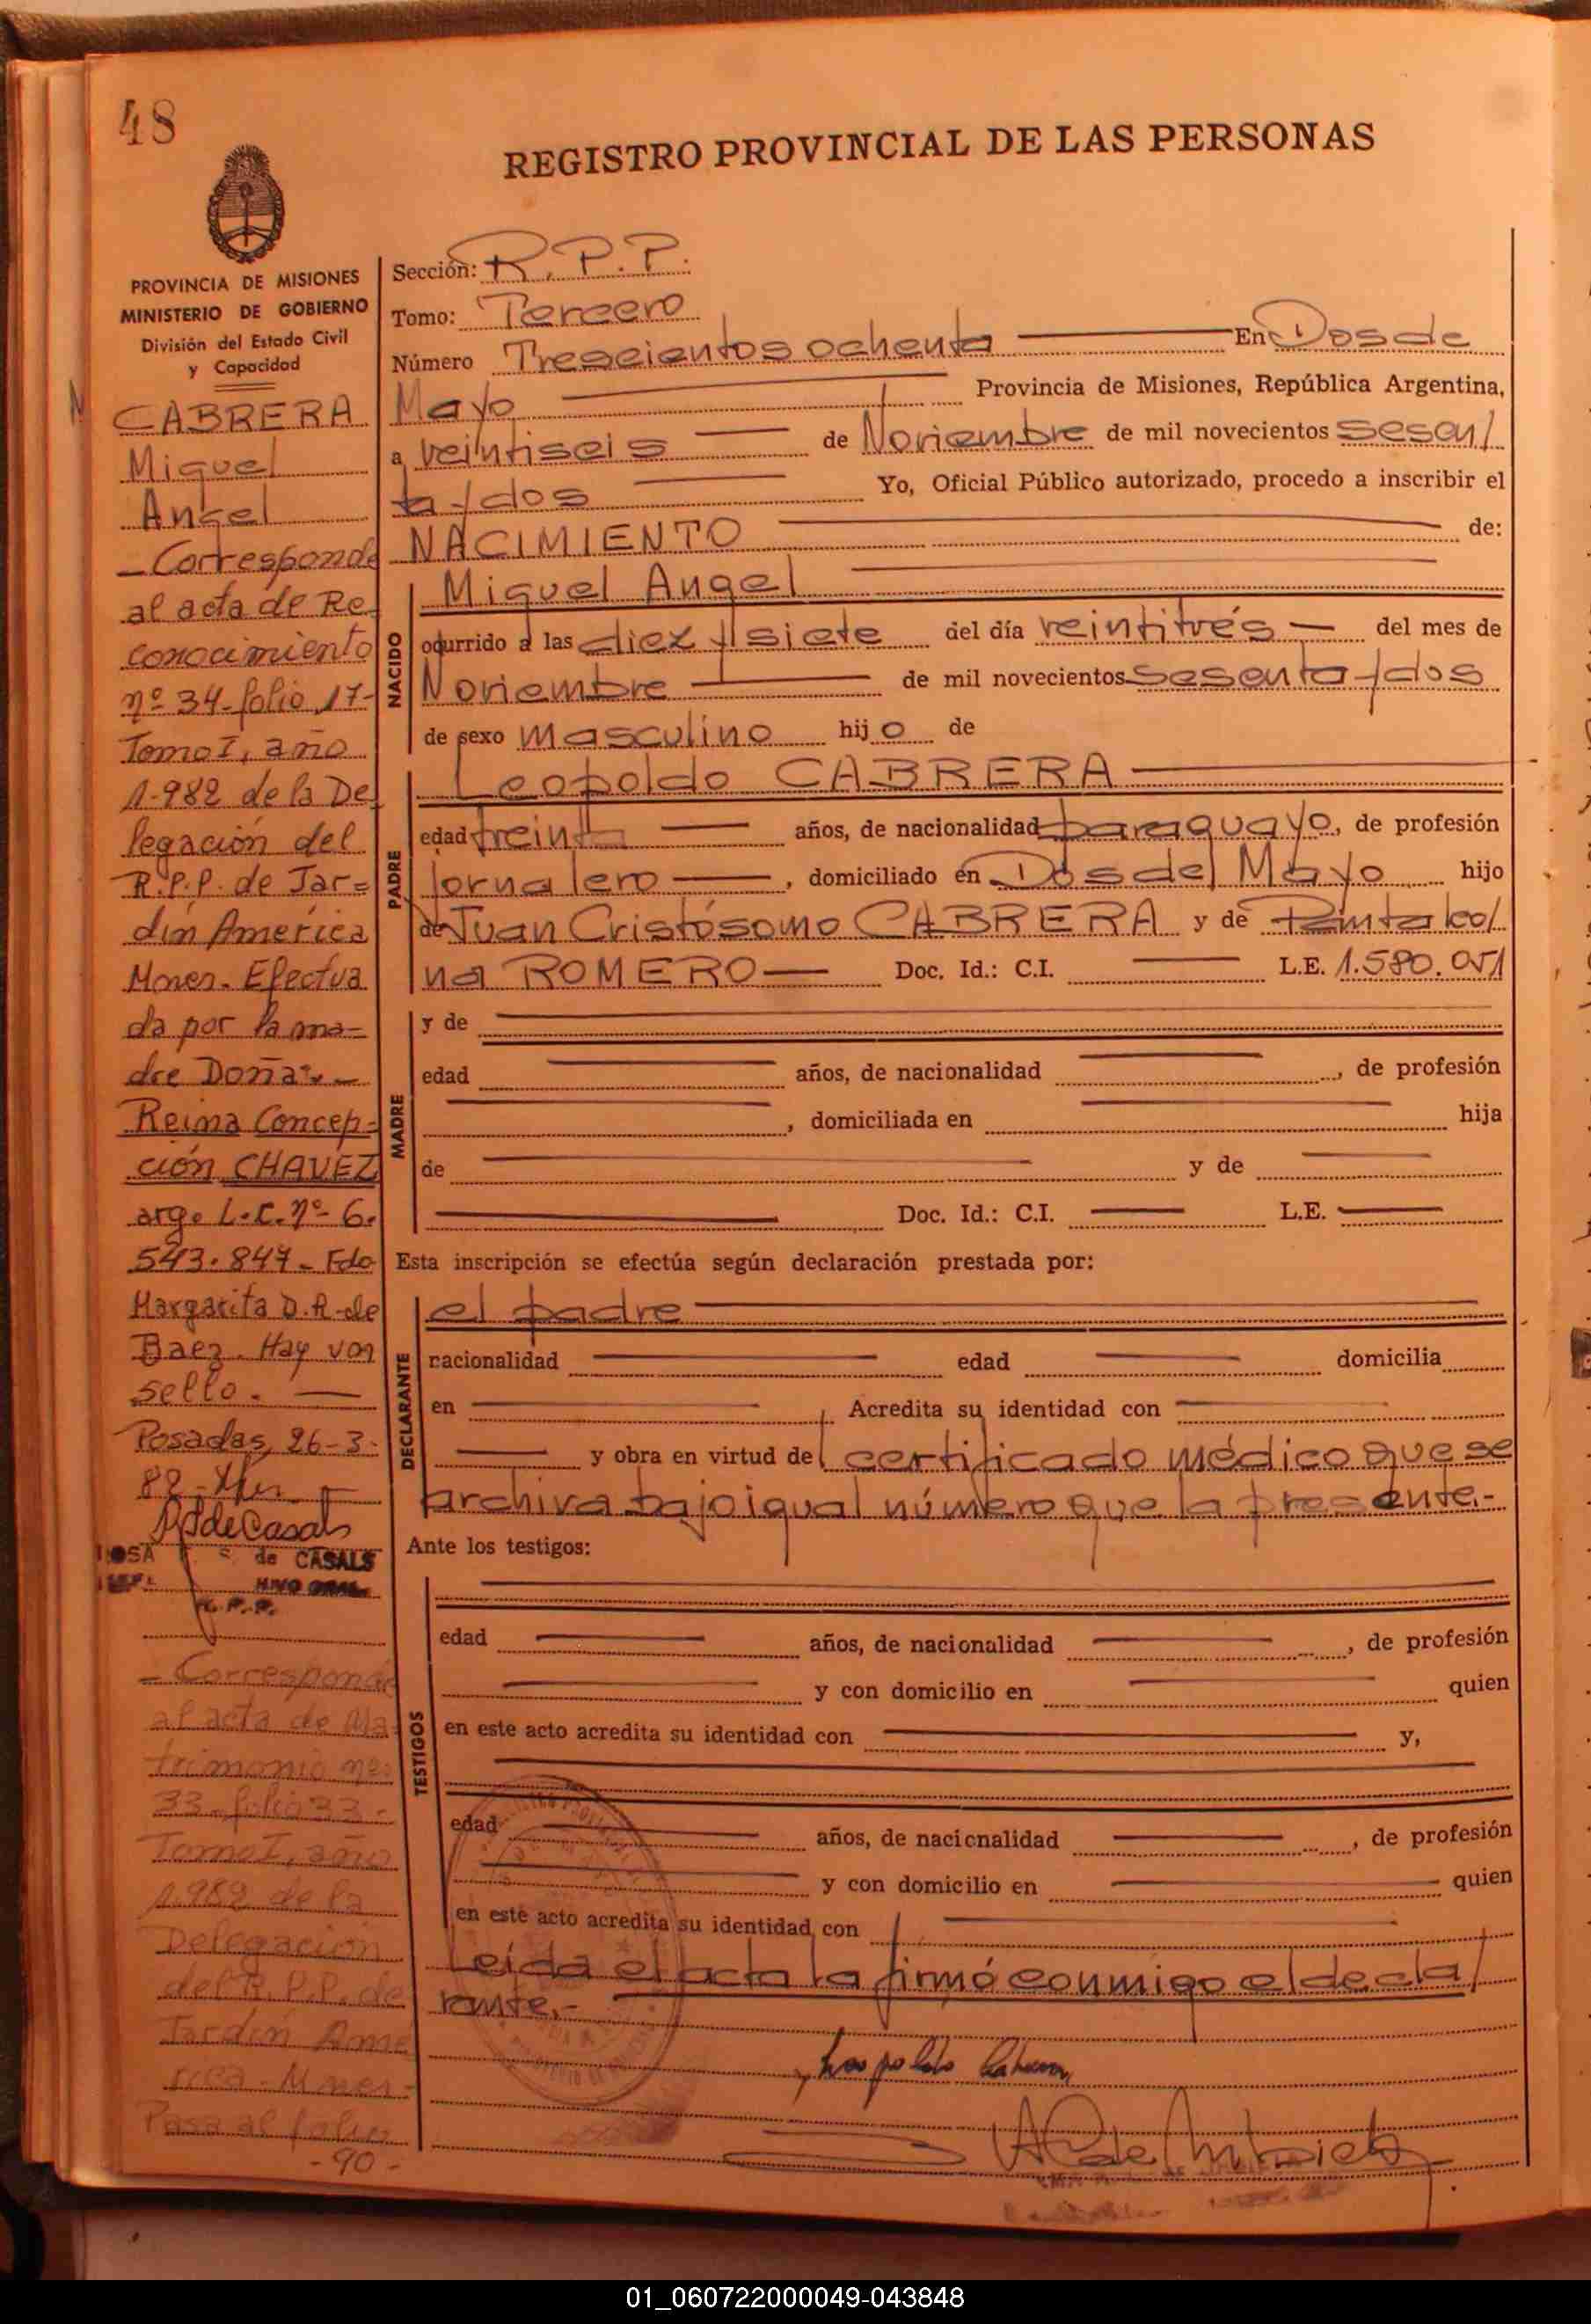 48
REGISTRO PROVINCIAL DE LAS PERSONAS
PROVINCIA DE MISIONES
MINISTERIO DE GOBIERNO
División del Estado Civil
y Capacidad
CABRERA
Miguel
Angel
- Corresponde
al acta de Re
conocimiento
nº 34-folio 17-
Tomo I, año
1.982 de la De
legación del
R.P.P. de Jar=
dín América
Mnes. Efectua
da por la ma-
dre Doña
Reina Concep-
ción CHAVEZ
arg. L.C. nº 6.
543.847- Fdo
Margarita D.A. de
Baez. Hay un
sello.
Posadas, 26-3-
de CASALS
R.P.P.
- Corresponde
al acta de Ma-
trimonio nº
33-folio 33-
Tomo I, año
1.982 de la
Delegación
del R.P.P. de
Jardín Amé
rica-Mnes-
Pasa al folio
-90-
Sección: R.P.P.
Tomo: Tercero
Número Trescientos ochenta En Dos de
Mayo Provincia de Misiones, República Argentina,
a veintiseis de Noviembre de mil novecientos sesen/
ta y dos Yo, Oficial Público autorizado, procedo a inscribir el
NACIMIENTO de:
NACIDO
Miguel Angel
ocurrido a las diez y siete del día veintitrés del mes de
Noviembre de mil novecientos sesenta y dos
de sexo masculino hijo de
PADRE
Leopoldo CABRERA
edad treinta años, de nacionalidad paraguayo, de profesión
Jornalero, domiciliado en Dos de Mayo hijo
de Juan Cristósomo CABRERA y de
na ROMERO Doc. Id.: C.I. L.E. 1.580.051
MADRE
y de
edad años, de nacionalidad , de profesión
, domiciliada en hija
de y de
Doc. Id.: C.I. L.E.
Esta inscripción se efectúa según declaración prestada por:
DECLARANTE
el padre
nacionalidad edad domicilia
en Acredita su identidad con
y obra en virtud del certificado médico que se
archiva bajo igual número que la presente.-
Ante los testigos:
TESTIGOS
edad años, de nacionalidad , de profesión
y con domicilio en quien
en este acto acredita su identidad con y,
edad años, de nacionalidad , de profesión
y con domicilio en quien
en este acto acredita su identidad con
Leída el acta la firmó conmigo el decla/
rante.-
Leopoldo Cabrera
01_060722000049-043848